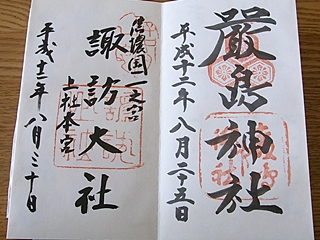 嚴島神社
平成十二年八月二十五日
信濃国
一之宮
諏訪大社
上社本宮
平成十二年八月三十日